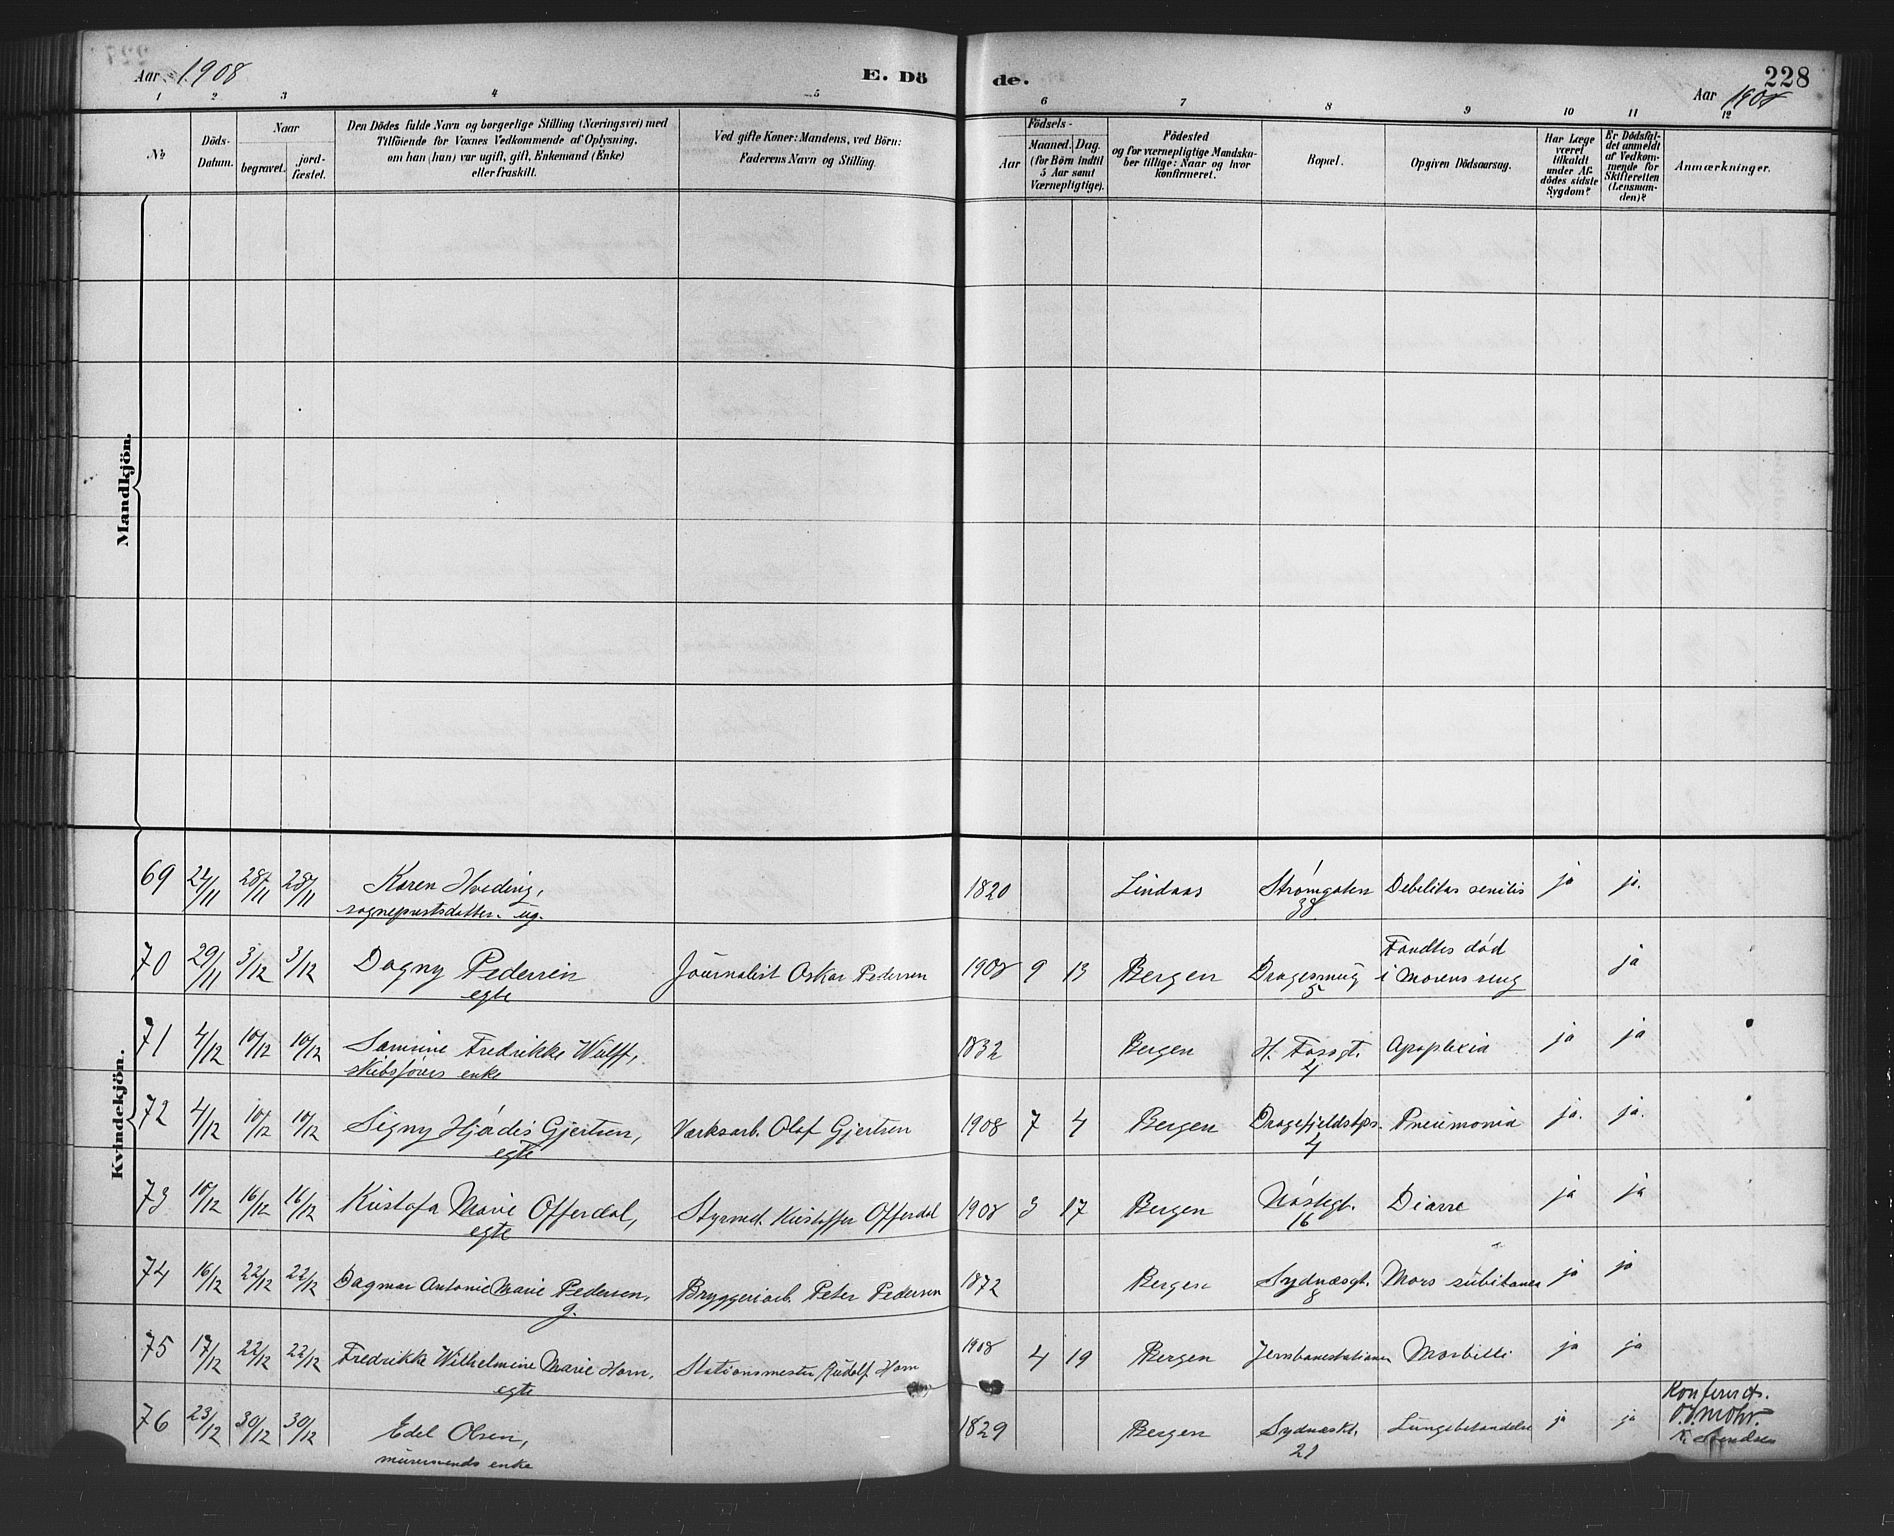 Aar 1908
E. Dö
de.
228
Aar 1908
1 2 3 4 5 6 7 8 9 10 11 12
№
Döds-
Datum.
Naar
begravet.
jord-
fæstet.
Den Dödes fulde Navn og borgerlige Stilling (Næringsvei) med
Tilföiende for Voxnes Vedkommende af Oplysning,
om han (hun) var ugift, gift, Enkemand (Enke)
eller fraskilt.
Ved gifte Koner: Mandens, ved Börn:
Faderens Navn og Stilling.
Födsels-
Aar
Maaned. Dag.
(for Börn indtil
5 Aar samt
Værnepligtige).
Födested
og for værnepligtige Mandskaber
tillige: Naar og hvor
konfirmeret.
Bopæl.
Opgiven Dödsaarsag.
Har Læge
været
tilkaldt
under Af-
dödes sidste
Sygdom?
Er Dödsfal-
det anmeldt
af Vedkom-
mende for
Skifteretten
(Lensman-
den)?
Anmærkninger.
Mandkjön.
Kvindekjön.
69 /11 28/11 28/11 Karen Hveding, 1820 Lindaas Strømgaten Debilitas senilis ja ja.
sognepræstsdatter. ug. 38
70 29/11 3/12 3/12 Dagny Pedersen Journalist Oskar Pedersen 1908 9 13 Bergen Dragesmug Fandtes død ja
egte 5 i morens seng
71 4/12 10/12 10/12 Samine Fredrikke Wulff, 1832 Bergen H. Fossgt. Apoplexia ja ja
skibsførers enke 4
72 4/12 10/12 10/12 Signy Hjødis Gjertsen, Værksarb. Olaf Gjertsen 1908 7 4 Bergen Dragefjeldstps. Pneumonia ja. ja.
egte 4
73 10/12 16/12 16/12 Kristofa Marie Offerdal, Styrmd. Kristoffer Offerdal 1908 3 17 Bergen Nøstegt. Diarre ja ja
egte 16
74 16/12 22/12 22/12 Dagmar Antonie Marie Pedersen, Bryggeriarb. Peter Pedersen 1872 Bergen Sydnæsgt. Mors subitanea ja ja
g. 8
75 17/12 22/12 22/12 Fredrikke Wilhelmine Marie Horn, Stationsmester Rudolf Horn 1908 4 19 Bergen Jernbanestationen Morbilli ja ja
egte
76 23/12 30/12 30/12 Edel Olsen, 1829 Bergen Sydnæskl. Lungebetændelse ja ja
murersvends enke 21
Konf.
Mohr.